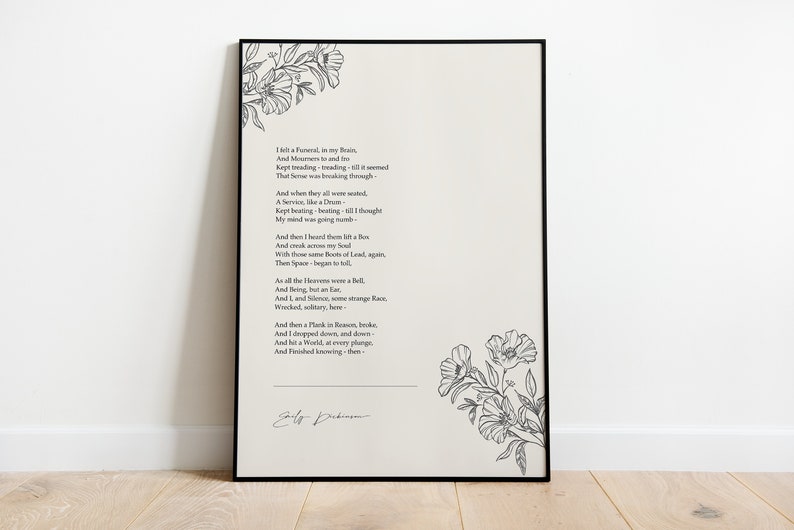 I felt a Funeral, in my Brain,
And Mourners to and fro
Kept treading - treading - till it seemed
That Sense was breaking through -
And when they all were seated,
A Service, like a Drum -
Kept beating - beating - till I thought
My mind was going numb -
And then I heard them lift a Box
And creak across my Soul
With those same Boots of Lead, again,
Then Space - began to toll,
As all the Heavens were a Bell,
And Being, but an Ear,
And I, and Silence, some strange Race,
Wrecked, solitary, here -
And then a Plank in Reason, broke,
And I dropped down, and down -
And hit a World, at every plunge,
And Finished knowing - then -
Emily Dickinson